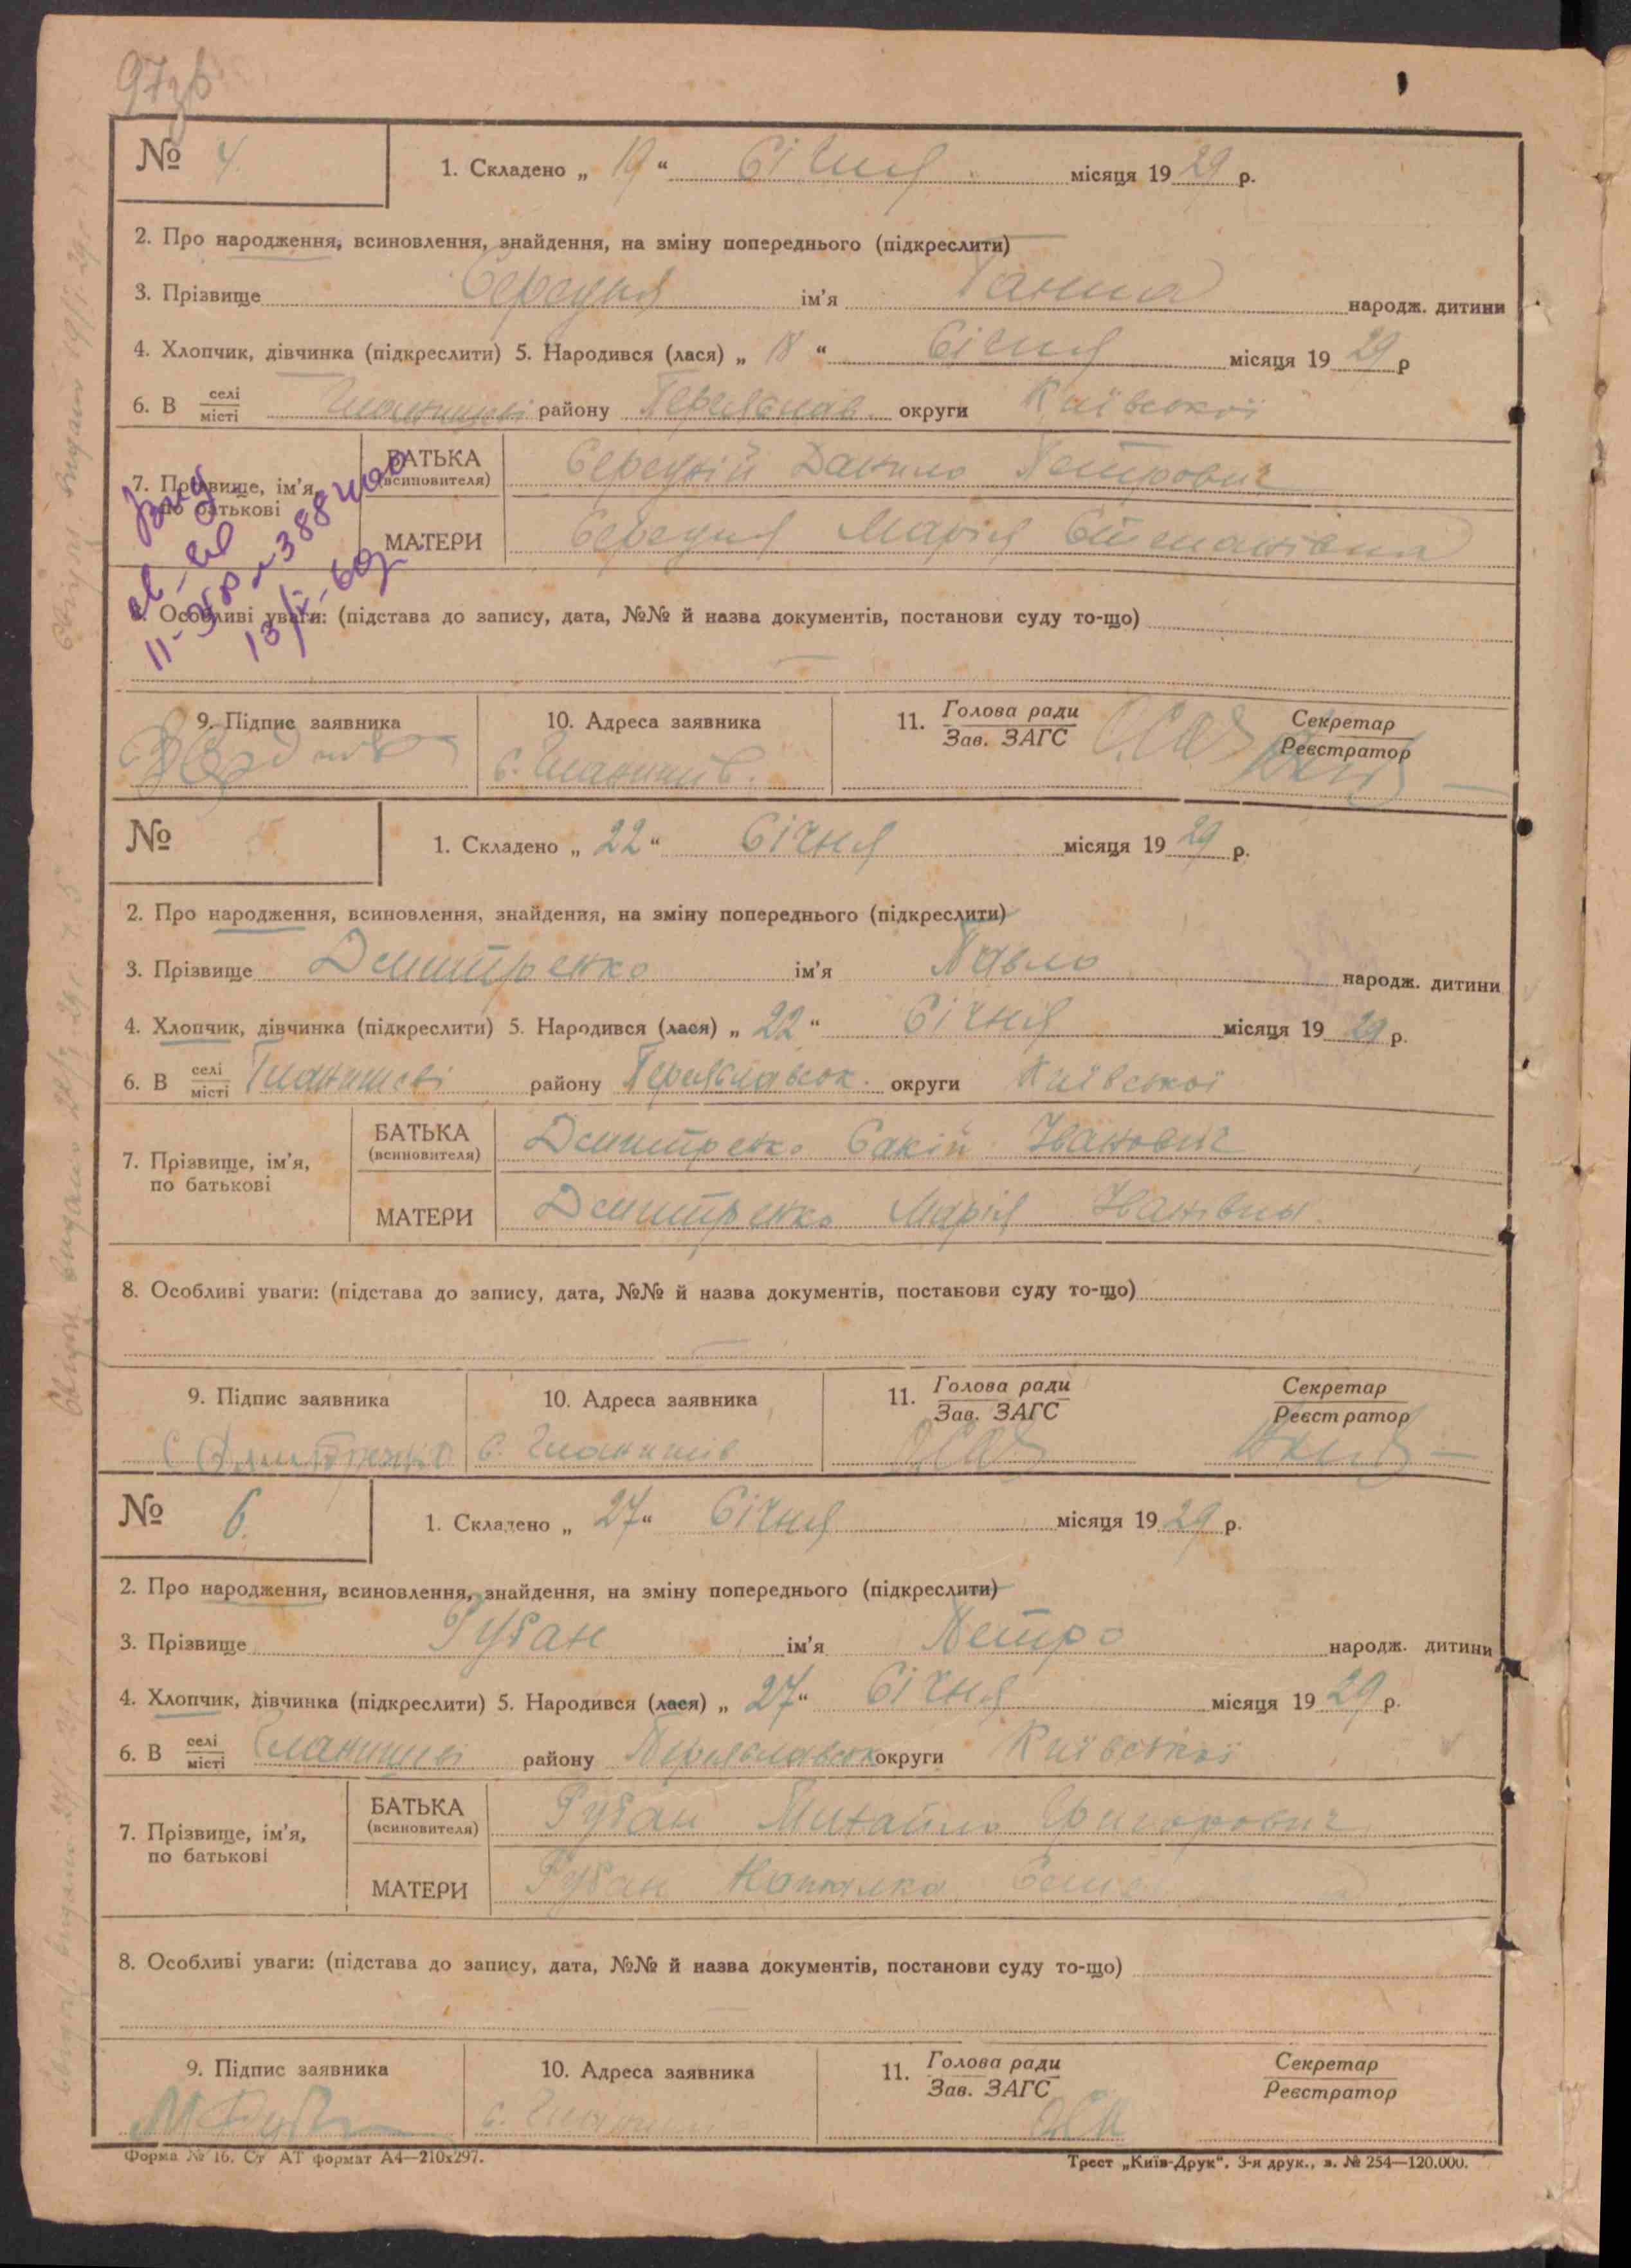 97зв
№ 4. 1. Складено „ 19 “ Січня місяця 19 29 р.
2. Про народження, всиновлення, знайдення, на зміну попереднього (підкреслити)
3. Прізвище Середня ім'я Ганна народж. дитини
4. Хлопчик, дівчинка (підкреслити) 5. Народився (лася) „ 18 “ Січня місяця 19 29 р
6. В селі / місті району Переяслав. округи Київської
7. Прізвище, ім'я, по батькові
БАТЬКА (всиновителя) Середній Данило Петрович
МАТЕРИ Середня Марія Степанівна
8. Особливі уваги: (підстава до запису, дата, №№ й назва документів, постанови суду то-що)
9. Підпис заявника 10. Адреса заявника 11. Голова ради / Зав. ЗАГС Секретар / Реєстратор
№ 1. Складено „ 22 “ Січня місяця 19 29 р.
2. Про народження, всиновлення, знайдення, на зміну попереднього (підкреслити)
3. Прізвище Демитренко ім'я Павло народж. дитини
4. Хлопчик, дівчинка (підкреслити) 5. Народився (лася) „ 22 “ Січня місяця 19 29 р.
6. В селі / місті району Переяславськ. округи Київської
7. Прізвище, ім'я, по батькові
БАТЬКА (всиновителя) Демитренко Сакій Іванович
МАТЕРИ Демитренко Марія Іванівна
8. Особливі уваги: (підстава до запису, дата, №№ й назва документів, постанови суду то-що)
9. Підпис заявника 10. Адреса заявника 11. Голова ради / Зав. ЗАГС Секретар / Реєстратор
№ 6. 1. Складено „ 27 “ Січня місяця 19 29 р.
2. Про народження, всиновлення, знайдення, на зміну попереднього (підкреслити)
3. Прізвище Рубан ім'я Петро народж. дитини
4. Хлопчик, дівчинка (підкреслити) 5. Народився (лася) „ 27 “ Січня місяця 19 29 р.
6. В селі / місті району Переяславськ округи Київської
7. Прізвище, ім'я, по батькові
БАТЬКА (всиновителя) Рубан Михайло Григорович
МАТЕРИ Рубан Наталка
8. Особливі уваги: (підстава до запису, дата, №№ й назва документів, постанови суду то-що)
9. Підпис заявника 10. Адреса заявника 11. Голова ради / Зав. ЗАГС Секретар / Реєстратор
Форма № 16. Ст АТ формат А4—210х297. Трест „Київ-Друк“. 3-я друк., з. № 254—120.000.